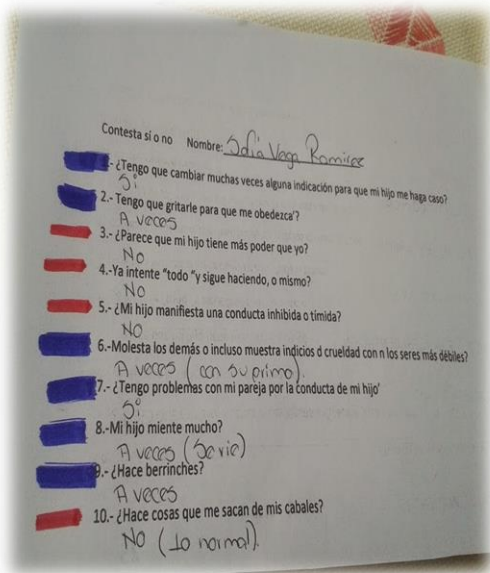 Contesta sí o no Nombre: Sofia Vega Ramirez
1.- ¿Tengo que cambiar muchas veces alguna indicación para que mi hijo me haga caso?
Si
2.- Tengo que gritarle para que me obedezca'?
A veces
3.- ¿Parece que mi hijo tiene más poder que yo?
No
4.-Ya intente "todo "y sigue haciendo, o mismo?
No
5.- ¿Mi hijo manifiesta una conducta inhibida o tímida?
No
6.-Molesta los demás o incluso muestra indicios d crueldad con n los seres más débiles?
A veces (con su primo).
7.- ¿Tengo problemas con mi pareja por la conducta de mi hijo'
Si
8.-Mi hijo miente mucho?
A veces (Se rie)
9.- ¿Hace berrinches?
A veces
10.- ¿Hace cosas que me sacan de mis cabales?
No (lo normal).